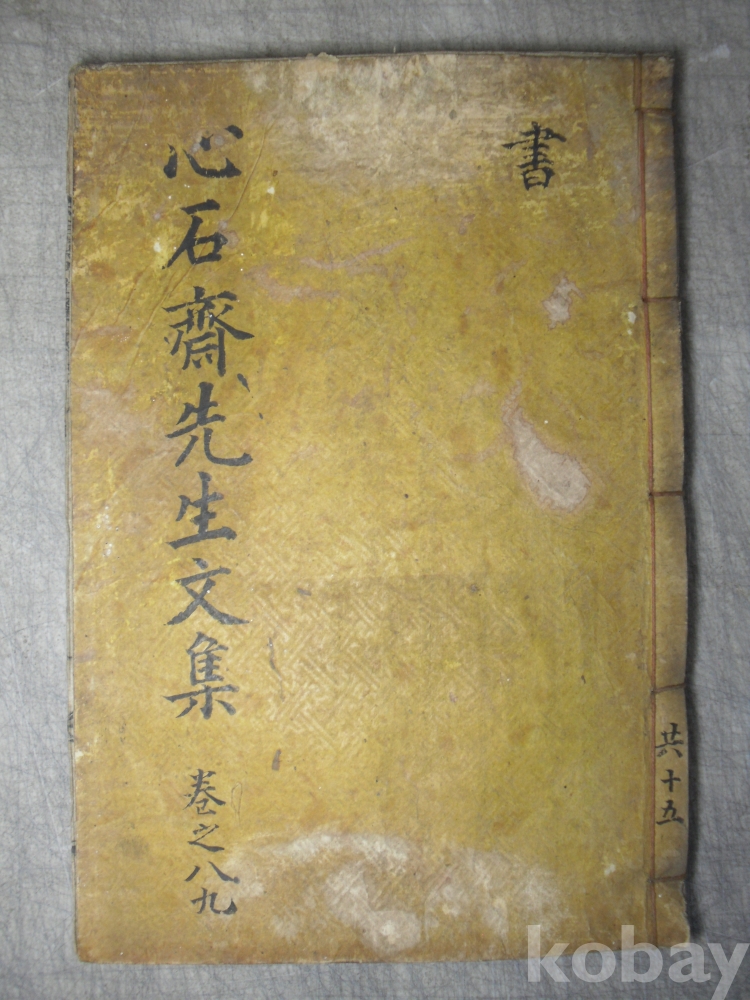 書
心石齋先生文集
卷之八九
共十五
kobay